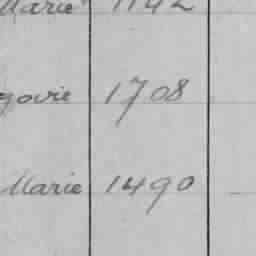 Marie 1142
govie 1708
Marie 1490